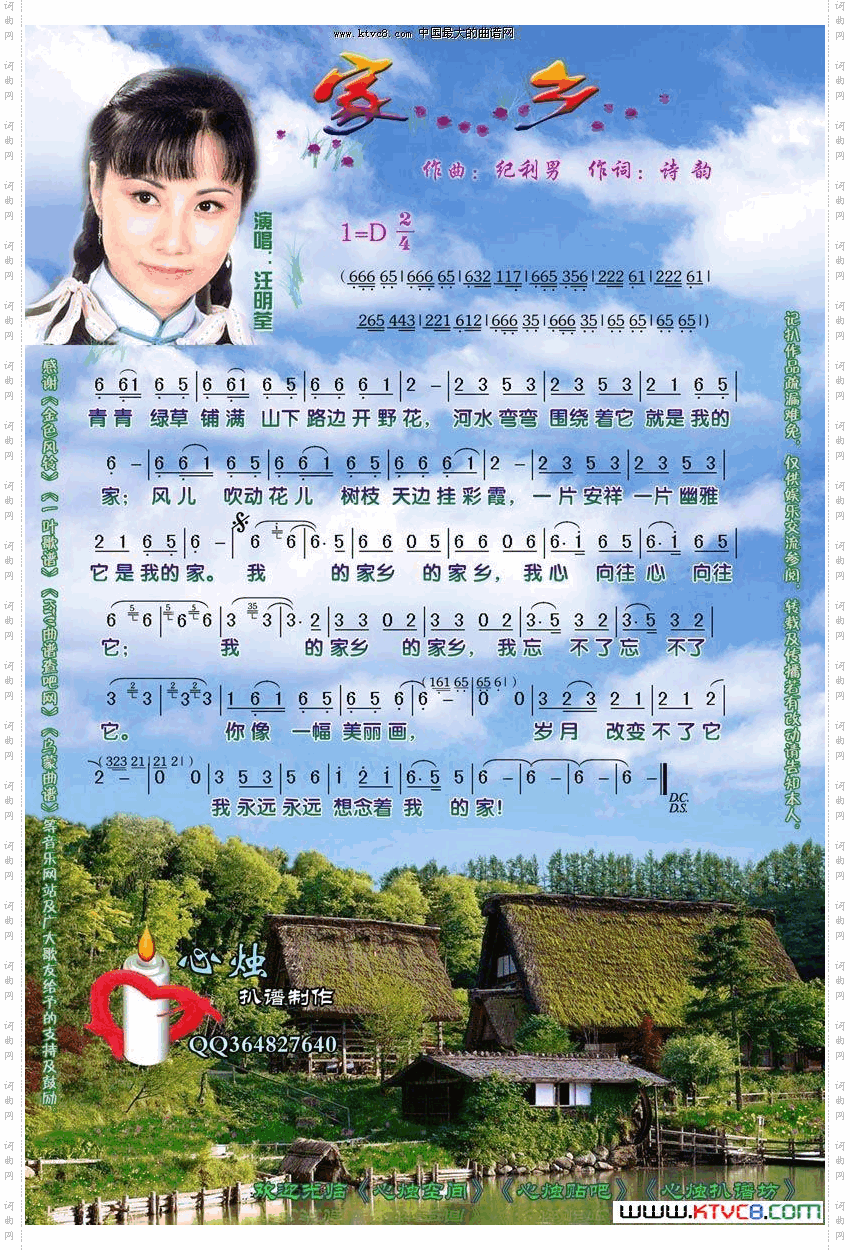 www.ktvc8.com 中国最大的曲谱网
家 乡
作曲：纪利男 作词：诗 韵
演唱：汪明荃
1=D 2/4
(666 65|666 65|632 117|665 356|222 61|222 61|
265 443|221 612|666 35|666 35|65 65|65 65|)
6 61 6 5|6 61 6 5|6 6 6 1|2 －|2 3 5 3|2 3 5 3|2 1 6 5|
青青 绿草 铺满 山下 路边开野花， 河水弯弯 围绕着它 就是我的
6 －|6 6 1 6 5|6 6 1 6 5|6 6 6 1|2 －|2 3 5 3|2 3 5 3|
家； 风儿 吹动花儿 树枝 天边挂彩霞， 一片安祥 一片幽雅
2 1 6 5|6 －|6 i 6|6· 5|6 6 0 5|6 6 0 6|6· i 6 5|6· i 6 5|
它是我的家。 我 的家乡 的家乡， 我心 向往心 向往
6 5 6|5 6 5 6|3 35 3|3· 2|3 3 0 2|3 3 0 2|3· 5 3 2|3· 5 3 2|
它； 我 的家乡 的家乡， 我忘 不了忘 不了
3 2 3|2 3 2 3|1 6 1|6 5 6|6 5 6|(161 65|65 6|)6 －|0 0|3 2 3 2 1|2 1 2|
它。 你像 一幅 美丽画， 岁月 改变不了它
(323 21|21 2|)2 －|0 0|3 5 3|5 6|i 2 i|6· 5 5|6 －|6 －|6 －|6 －‖
D.C.
D.S.
我永远永远 想念着 我 的家！
感谢《金色风铃》《一叶歌谱》《ktv曲谱查吧网》《乌蒙曲谱》等音乐网站及广大歌友给予的支持及鼓励
记扒作品疏漏难免，仅供娱乐交流参阅，转载及传播若有改动请告知本人。
心烛
扒谱制作
QQ364827640
欢迎光临《心烛空间》《心烛贴吧》《心烛扒谱坊》
www.KTVC8.com
词曲网